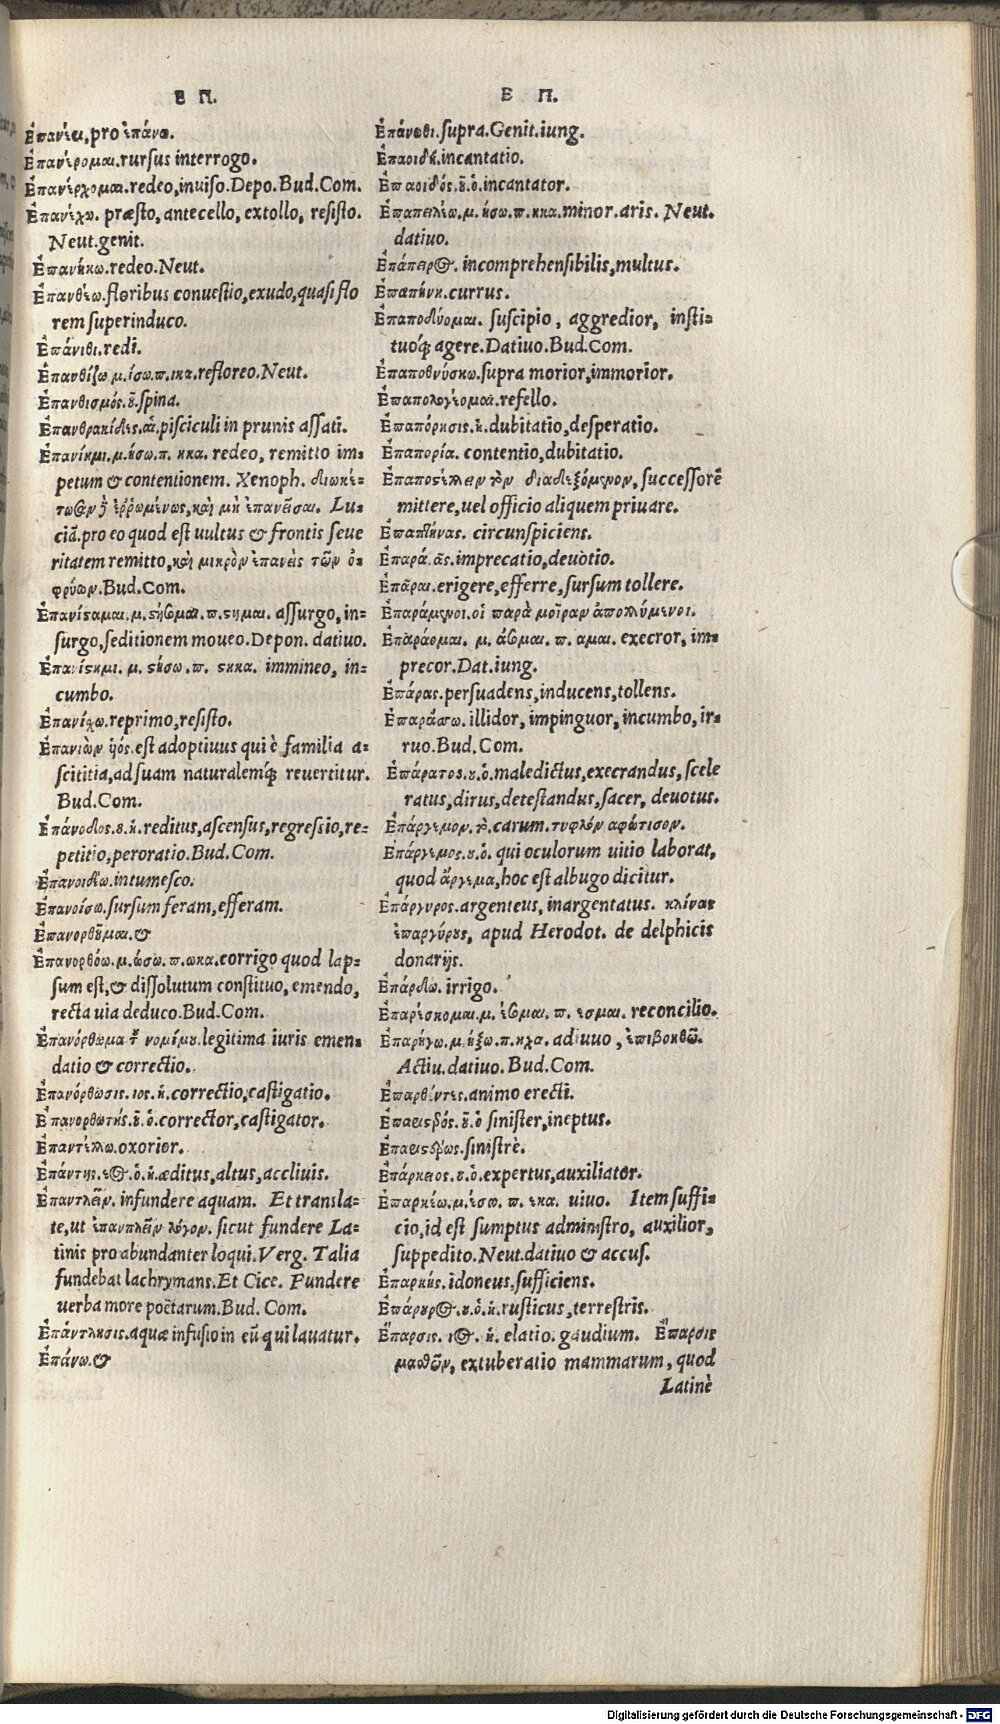 Ε Π.
Ἐπανέω, pro ἐπάνω.
Ἐπανέρομαι. rursus interrogo.
Ἐπανέρχομαι. redeo, inuiso. Depo. Bud. Com.
Ἐπανέχω. præsto, antecello, extollo, resisto.
Neut. genit.
Ἐπανήκω. redeo. Neut.
Ἐπανθέω. floribus conuestio, exudo, quasi flo
rem superinduco.
Ἐπάνιθι. redi.
Ἐπανθίζω μ. ίσω. π. ικα. refloreo. Neut.
Ἐπανθισμός. οῦ. spina.
Ἐπανθρακίδες. αἱ. pisciculi in prunis assati.
Ἐπανίημι. μ. ήσω. π. ηκα. redeo, remitto im=
petum & contentionem. Xenoph. διωκέ=
τωσαν ἐῤῥωμένως, καὶ μὴ ἐπανεῖσαι. Lu=
ciã. pro eo quod est uultus & frontis seue
ritatem remitto, καὶ μικρὸν ἐπανεὶς τῶν ὀ=
φρύων. Bud. Com.
Ἐπανίσαμαι. μ. στήσομαι. π. στημαι. assurgo, in=
surgo, seditionem moueo. Depon. datiuo.
Ἐπανίστημι. μ. στήσω. π. στηκα. immineo, in=
cumbo.
Ἐπανίχω. reprimo, resisto.
Ἐπανιὼν ὑός. est adoptiuus qui è familia a=
scititia, ad suam naturalemq́; reuertitur.
Bud. Com.
Ἐπάνοδος. ου. ἡ. reditus, ascensus, regressio, re=
petitio, peroratio. Bud. Com.
Ἐπανοιδέω. intumesco.
Ἐπανοίσω. sursum feram, efferam.
Ἐπανορθοῦμαι. &
Ἐπανορθόω. μ. ώσω. π. ωκα. corrigo quod lap=
sum est, & dissolutum constituo, emendo,
recta uia deduco. Bud. Com.
Ἐπανόρθωμα τοῦ νομίμου. legitima iuris emen=
datio & correctio.
Ἐπανόρθωσις. ιος. ἡ. correctio, castigatio.
Ἐπανορθωτής. οῦ. ὁ. corrector, castigator.
Ἐπαντέλλω. oxorior.
Ἐπάντης. εος. ὁ. ἡ. æditus, altus, accliuis.
Ἐπαντλεῖν. infundere aquam. Et transla=
te, ut ἐπαντλεῖν λόγον. sicut fundere La=
tinis pro abundanter loqui. Verg. Talia
fundebat lachrymans. Et Cice. Fundere
uerba more poëtarum. Bud. Com.
Ἐπάντλησις. aquæ infusio in eũ qui lauatur.
Ἐπάνω. &
Ε Π.
Ἐπάνωθι. supra. Genit. iung.
Ἐπαοιδή. incantatio.
Ἐπαοιδός. οῦ. ὁ. incantator.
Ἐπαπειλέω. μ. ήσω. π. ηκα. minor. aris. Neut.
datiuo.
Ἐπάπειρος. incomprehensibilis, multus.
Ἐπαπήνη. currus.
Ἐπαποδύομαι. suscipio, aggredior, insti=
tuoq́; agere. Datiuo. Bud. Com.
Ἐπαποθνήσκω. supra morior, immorior.
Ἐπαπολογέομαι. refello.
Ἐπαπόρησις. ἡ. dubitatio, desperatio.
Ἐπαπορία. contentio, dubitatio.
Ἐπαποστέλλειν τὸν διαδεξόμενον, successorẽ
mittere, uel officio aliquem priuare.
circunspiciens.
Ἐπαρά. ᾶς. imprecatio, deuotio.
Ἐπᾶραι. erigere, efferre, sursum tollere.
Ἐπαράμενοι. οἱ παρὰ μοῖραν ἀπολλύμενοι.
Ἐπαράομαι. μ. άσομαι. π. αμαι. execror, im=
precor. Dat. iung.
Ἐπάρας. persuadens, inducens, tollens.
Ἐπαράσσω. illidor, impinguor, incumbo, ir=
ruo. Bud. Com.
Ἐπάρατος. ου. ὁ. maledictus, execrandus, scele
ratus, dirus, detestandus, sacer, deuotus.
Ἐπάργεμον. τὸ. carum. τυφλόν αφώτισον.
Ἐπάργεμος. ου. ὁ. qui oculorum uitio laborat,
quod ἄργεμα, hoc est albugo dicitur.
Ἐπάργυρος. argenteus, inargentatus. κλίνας
ἐπαργύρους, apud Herodot. de delphicis
donarijs.
Ἐπάρδω. irrigo.
Ἐπαρέσκομαι. μ. έσομαι. π. εσμαι. reconcilio.
Ἐπαρήγω. μ. ήξω. π. ηχα. adiuuo, ἐπιβοηθῶ.
Actiu. datiuo. Bud. Com.
Ἐπαρθέντες. animo erecti.
Ἐπαρίστερός. οῦ. ὁ sinister, ineptus.
Ἐπαριστέρως. sinistrè.
Ἐπάρκειος. ου. ὁ. expertus, auxiliator.
Ἐπαρκέω. μ. έσω. π. εκα. uiuo. Item suffi=
cio, id est sumptus administro, auxilior,
suppedito. Neut. datiuo & accus.
Ἐπαρκής. idoneus. sufficiens.
Ἐπάρουρος. ου. ὁ. ἡ. rusticus, terrestris.
Ἔπαρσις. ιος. ἡ. elatio. gaudium. Ἔπαρσις
μασθῶν, extuberatio mammarum, quod
Latinè
Digitalisierung gefördert durch die Deutsche Forschungsgemeinschaft - DFG